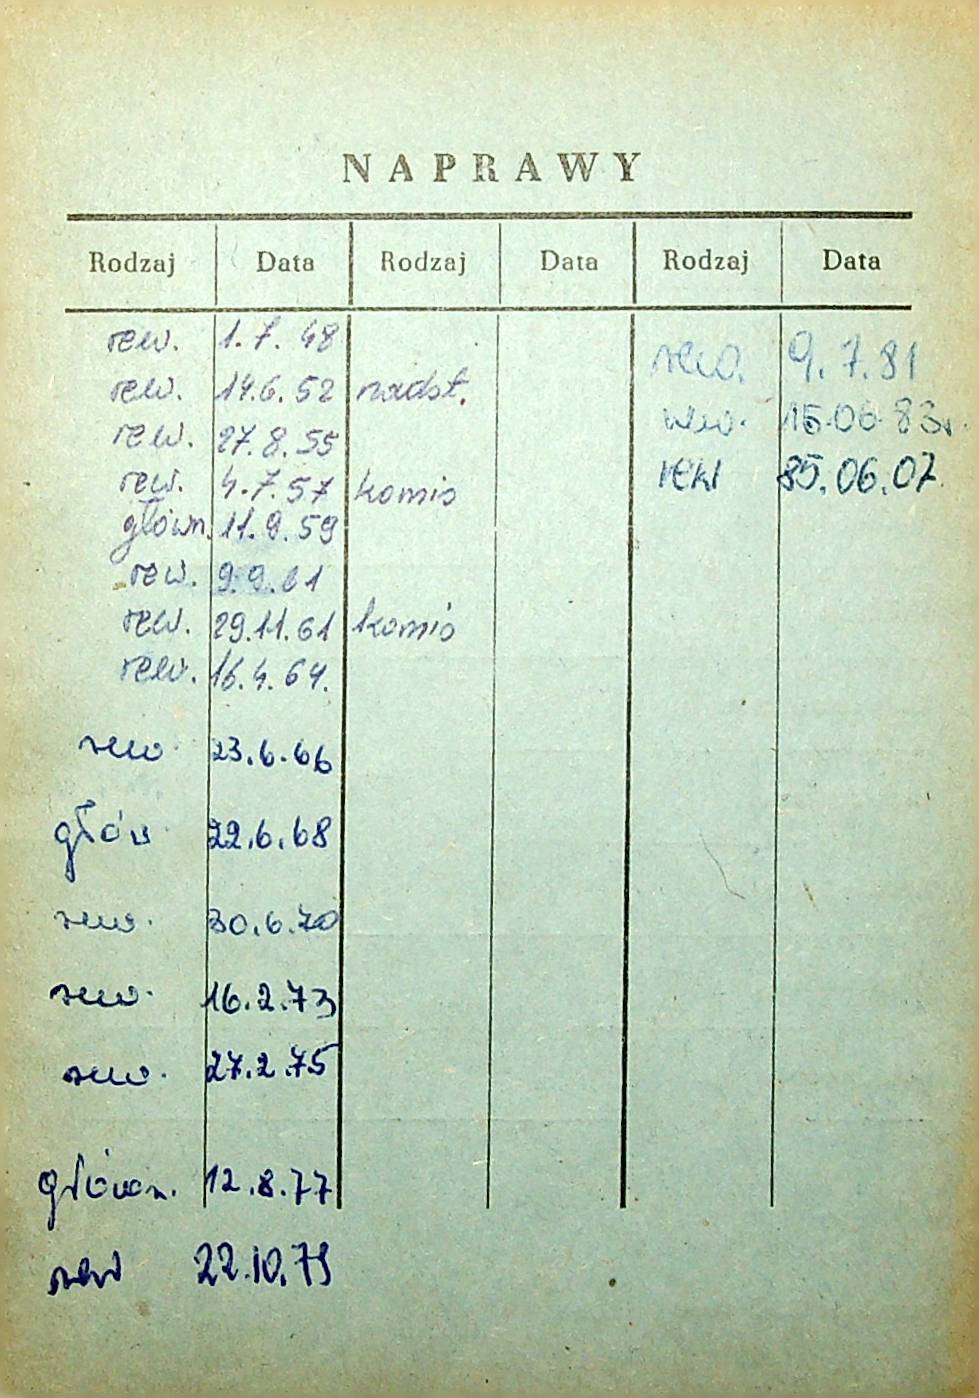 NAPRAWY
Rodzaj Data Rodzaj Data Rodzaj Data
rew. 1.7.48
rew. 14.6.52 nadst.
rew. 27.8.55
rew. 4.7.57 komis
główn. 11.9.59
rew. 9.9.61
rew. 29.11.61 komis
rew. 16.4.64.
rew. 23.6.66
głów 22.6.68
rew. 30.6.70
rew. 16.2.73
rew. 27.2.75
główn. 12.8.77
rew 22.10.79
rew. 9.7.81
rew. 15.06.83r.
rew 85.06.07